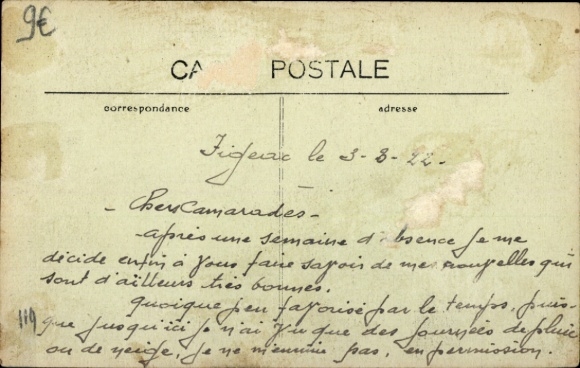 9€
CA POSTALE
correspondance
adresse
Figeac le 3-3-22-
- Chers Camarades -
Après une semaine d'absence je me
décide enfin à vous faire savoir de mes nouvelles qui
sont d'ailleurs très bonnes.
quoique peu favorisé par le temps, puis-
que jusqu'ici je n'ai vu que des journées de pluie
ou de neige, je ne m'ennuie pas, en permission.
119